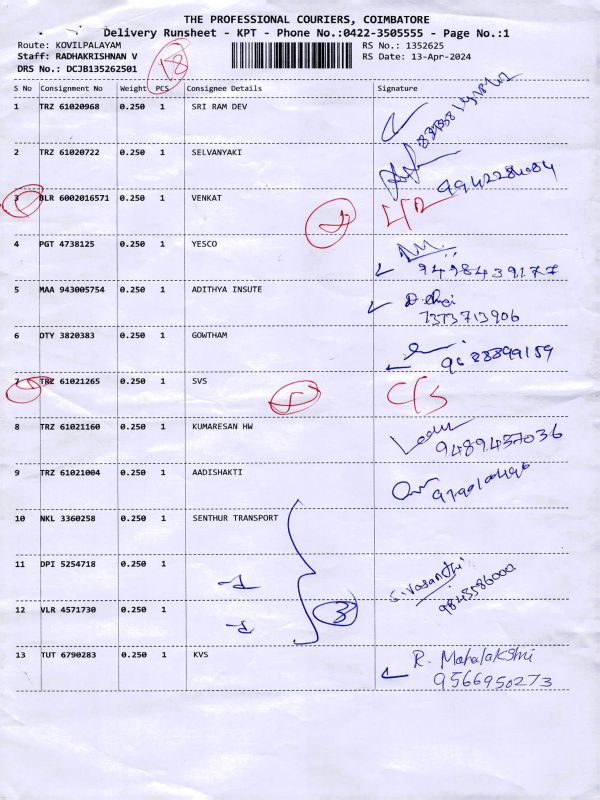 THE PROFESSIONAL COURIERS, COIMBATORE
Delivery Runsheet - KPT - Phone No.:0422-3505555 - Page No.:1
Route: KOVILPALAYAM
RS No.: 1352625
Staff: RADHAKRISHNAN V
RS Date: 13-Apr-2024
DRS No.: DCJB135262501
18
S No Consignment No Weight PCS Consignee Details Signature
1 TRZ 61020968 0.250 1 SRI RAM DEV
2 TRZ 61020722 0.250 1 SELVANYAKI
9942284084
3 BLR 6002016571 0.250 1 VENKAT
4 PGT 4738125 0.250 1 YESCO
9498439177
5 MAA 943005754 0.250 1 ADITHYA INSUTE
7373713906
6 DTY 3820383 0.250 1 GOWTHAM
9688899159
7 TRZ 61021265 0.250 1 SVS C/S
8 TRZ 61021160 0.250 1 KUMARESAN HW
9489437036
9 TRZ 61021004 0.250 1 AADISHAKTI
10 NKL 3360258 0.250 1 SENTHUR TRANSPORT
11 DPI 5254718 0.250 1
S. Vasanthi
9843586000
12 VLR 4571730 0.250 1
3
13 TUT 6790283 0.250 1 KVS R. Mahalakshmi
9566950273